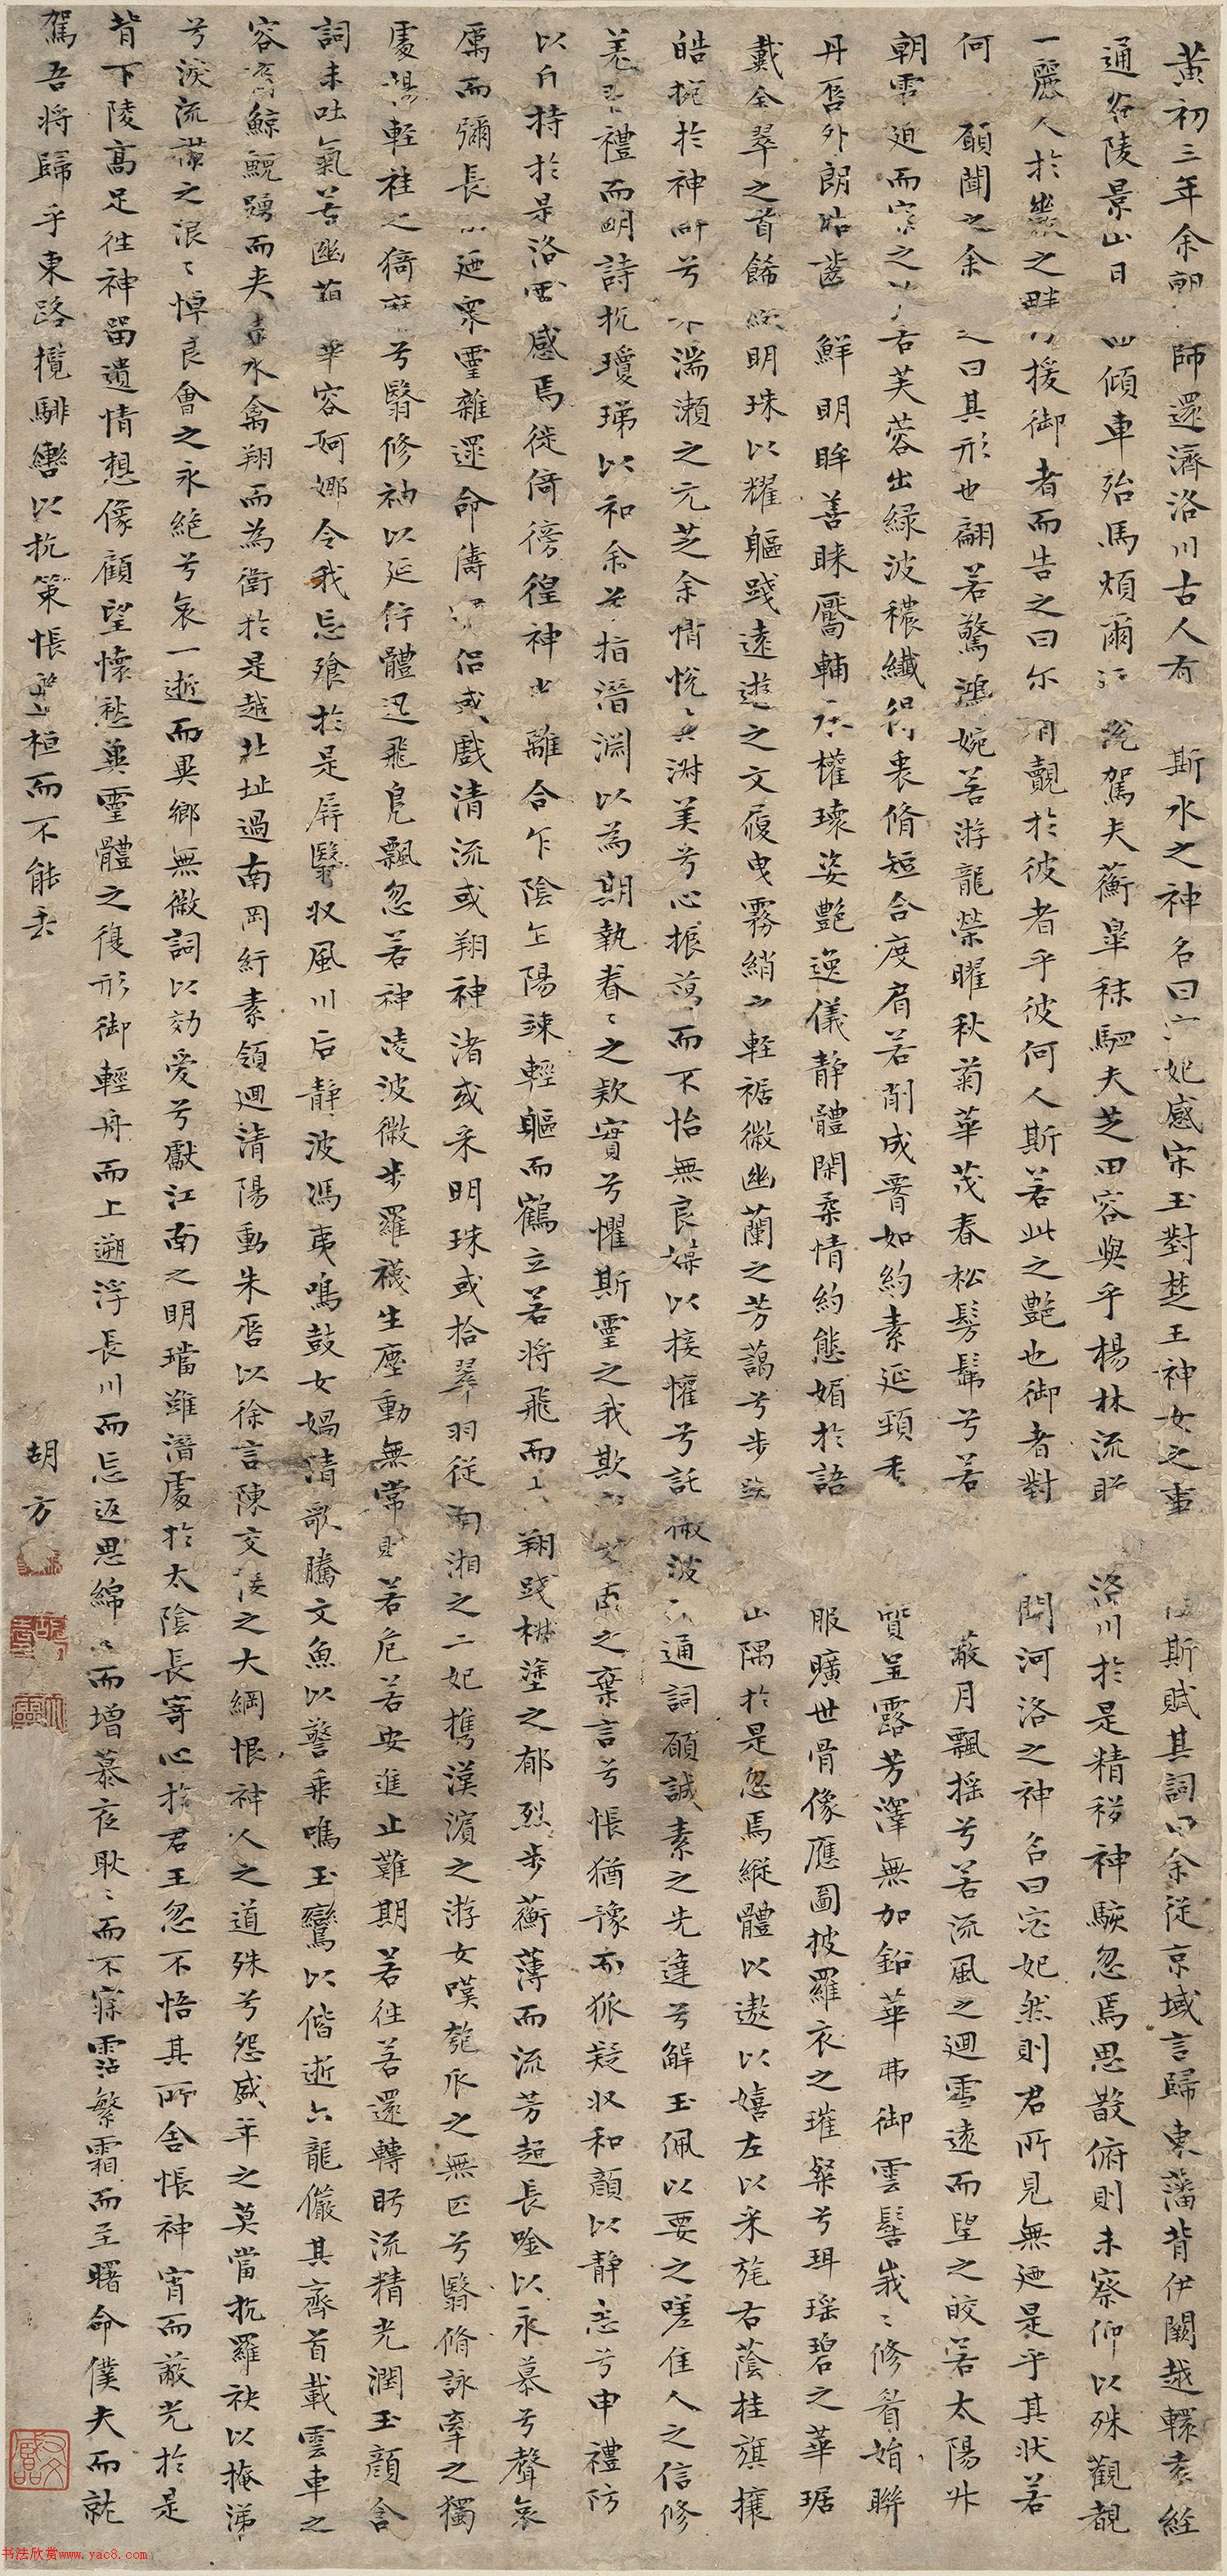 黃初三年余朝師還濟洛川古人有斯水之神名曰宓妃感宋玉對楚王神女之事斯賦其詞曰余從京域言歸東藩背伊闕越轘轅經
通谷陵景山日西傾車殆馬煩爾迺稅駕夫蘅皋秣駟夫芝田容與乎楊林流盼洛川於是精移神駭忽焉思散俯則未察仰以殊觀覩
一麗人於巖之畔乃援御者而告之曰尔有覿於彼者乎彼何人斯若此之艷也御者對聞河洛之神名曰宓妃然則君所見無迺是乎其狀若
何願聞之余之曰其形也翩若驚鴻婉若游龍榮曜秋菊華茂春松髣髴兮若蔽月飄搖兮若流風之迴雪遠而望之皎若太陽升
朝雲迫而察之若芙蓉出綠波穠纖得衷脩短合度肩若削成腰如約素延頸秀質呈露芳澤無加鉛華弗御雲髻峩〻修眉娟聯
丹脣外朗皓齒鮮明眸善睞靨輔承權瓌姿艷逸儀靜體閑柔情約態媚於語服曠世骨像應圖披羅衣之璀粲兮珥瑤碧之華琚
戴金翠之首飾綴明珠以耀軀踐遠遊之文履曳霧綃之輕裾微幽蘭之芳藹兮步踟山隅於是忽焉縱體以遨以嬉左以采旄右蔭桂旗攘
皓捥於神滸兮采湍瀨之元芝余情悅其淑美兮心振蕩而不怡無良媒以接懽兮託微波以通詞願誠素之先達兮解玉佩以要之嗟佳人之信修
羌習禮而明詩抗瓊珶以和余兮指潛淵以為期執眷〻之款實兮懼斯靈之我欺交甫之棄言兮悵猶豫而狐疑収和顏以靜志兮申禮防
以自持於是洛靈感焉徙倚傍徨神光離合乍陰乍陽竦輕軀而鶴立若將飛而未翔踐椒塗之郁烈步蘅薄而流芳超長唫以永慕兮聲哀
厲而彌長迺眾靈雜遝命儔侶或戲清流或翔神渚或采明珠或拾翠羽從南湘之二妃攜漢濱之游女嘆匏瓜之無匹兮翳脩詠牽之獨
處揚輕袿之猗靡兮翳修袖以延佇體迅飛鳧飄忽若神凌波微步羅襪生塵動無常則若危若安進止難期若往若還轉盼流精光潤玉顏含
詞未吐氣若幽蘭華容婀娜令我忘飧於是屏翳収風川后靜波馮夷鳴鼓女媧清歌騰文魚以警乘鳴玉鸞以偕逝六龍儼其齊首載雲車之
容裔鯨鯢踴而夾轂水禽翔而為衛於是越北沚過南岡紆素領迴清陽動朱脣以徐言陳交接之大綱恨神人之道殊兮怨盛年之莫當抗羅袂以掩涕
兮淚流襟之浪〻悼良會之永絕兮哀一逝而異鄉無微詞以効愛兮獻江南之明璫雖潛處於太陰長寄心於君王忽不悟其所舍悵神宵而蔽光於是
背下陵高足往神留遺情想像顧望懷愁冀靈體之復形御輕舟而上遡浮長川而忘返思綿〻而增慕夜耿〻而不寐霑繁霜而至曙命僕夫而就
駕吾將歸乎東路攬騑轡以抗策悵盤桓而不能去
胡方
书法欣赏www.yac8.com